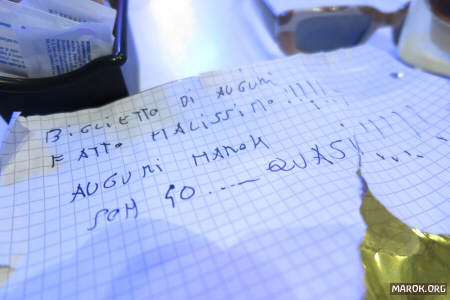 BIGLIETTO DI AUGURI
FATTO MALISSIMO !!!!!
AUGURI MAROK !!!!!
SON 40 ..... QUASI
MAROK.ORG